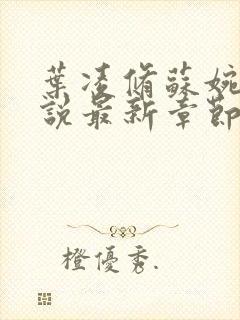 葉凌脩蘇婉
說最新章節
橙優秀.